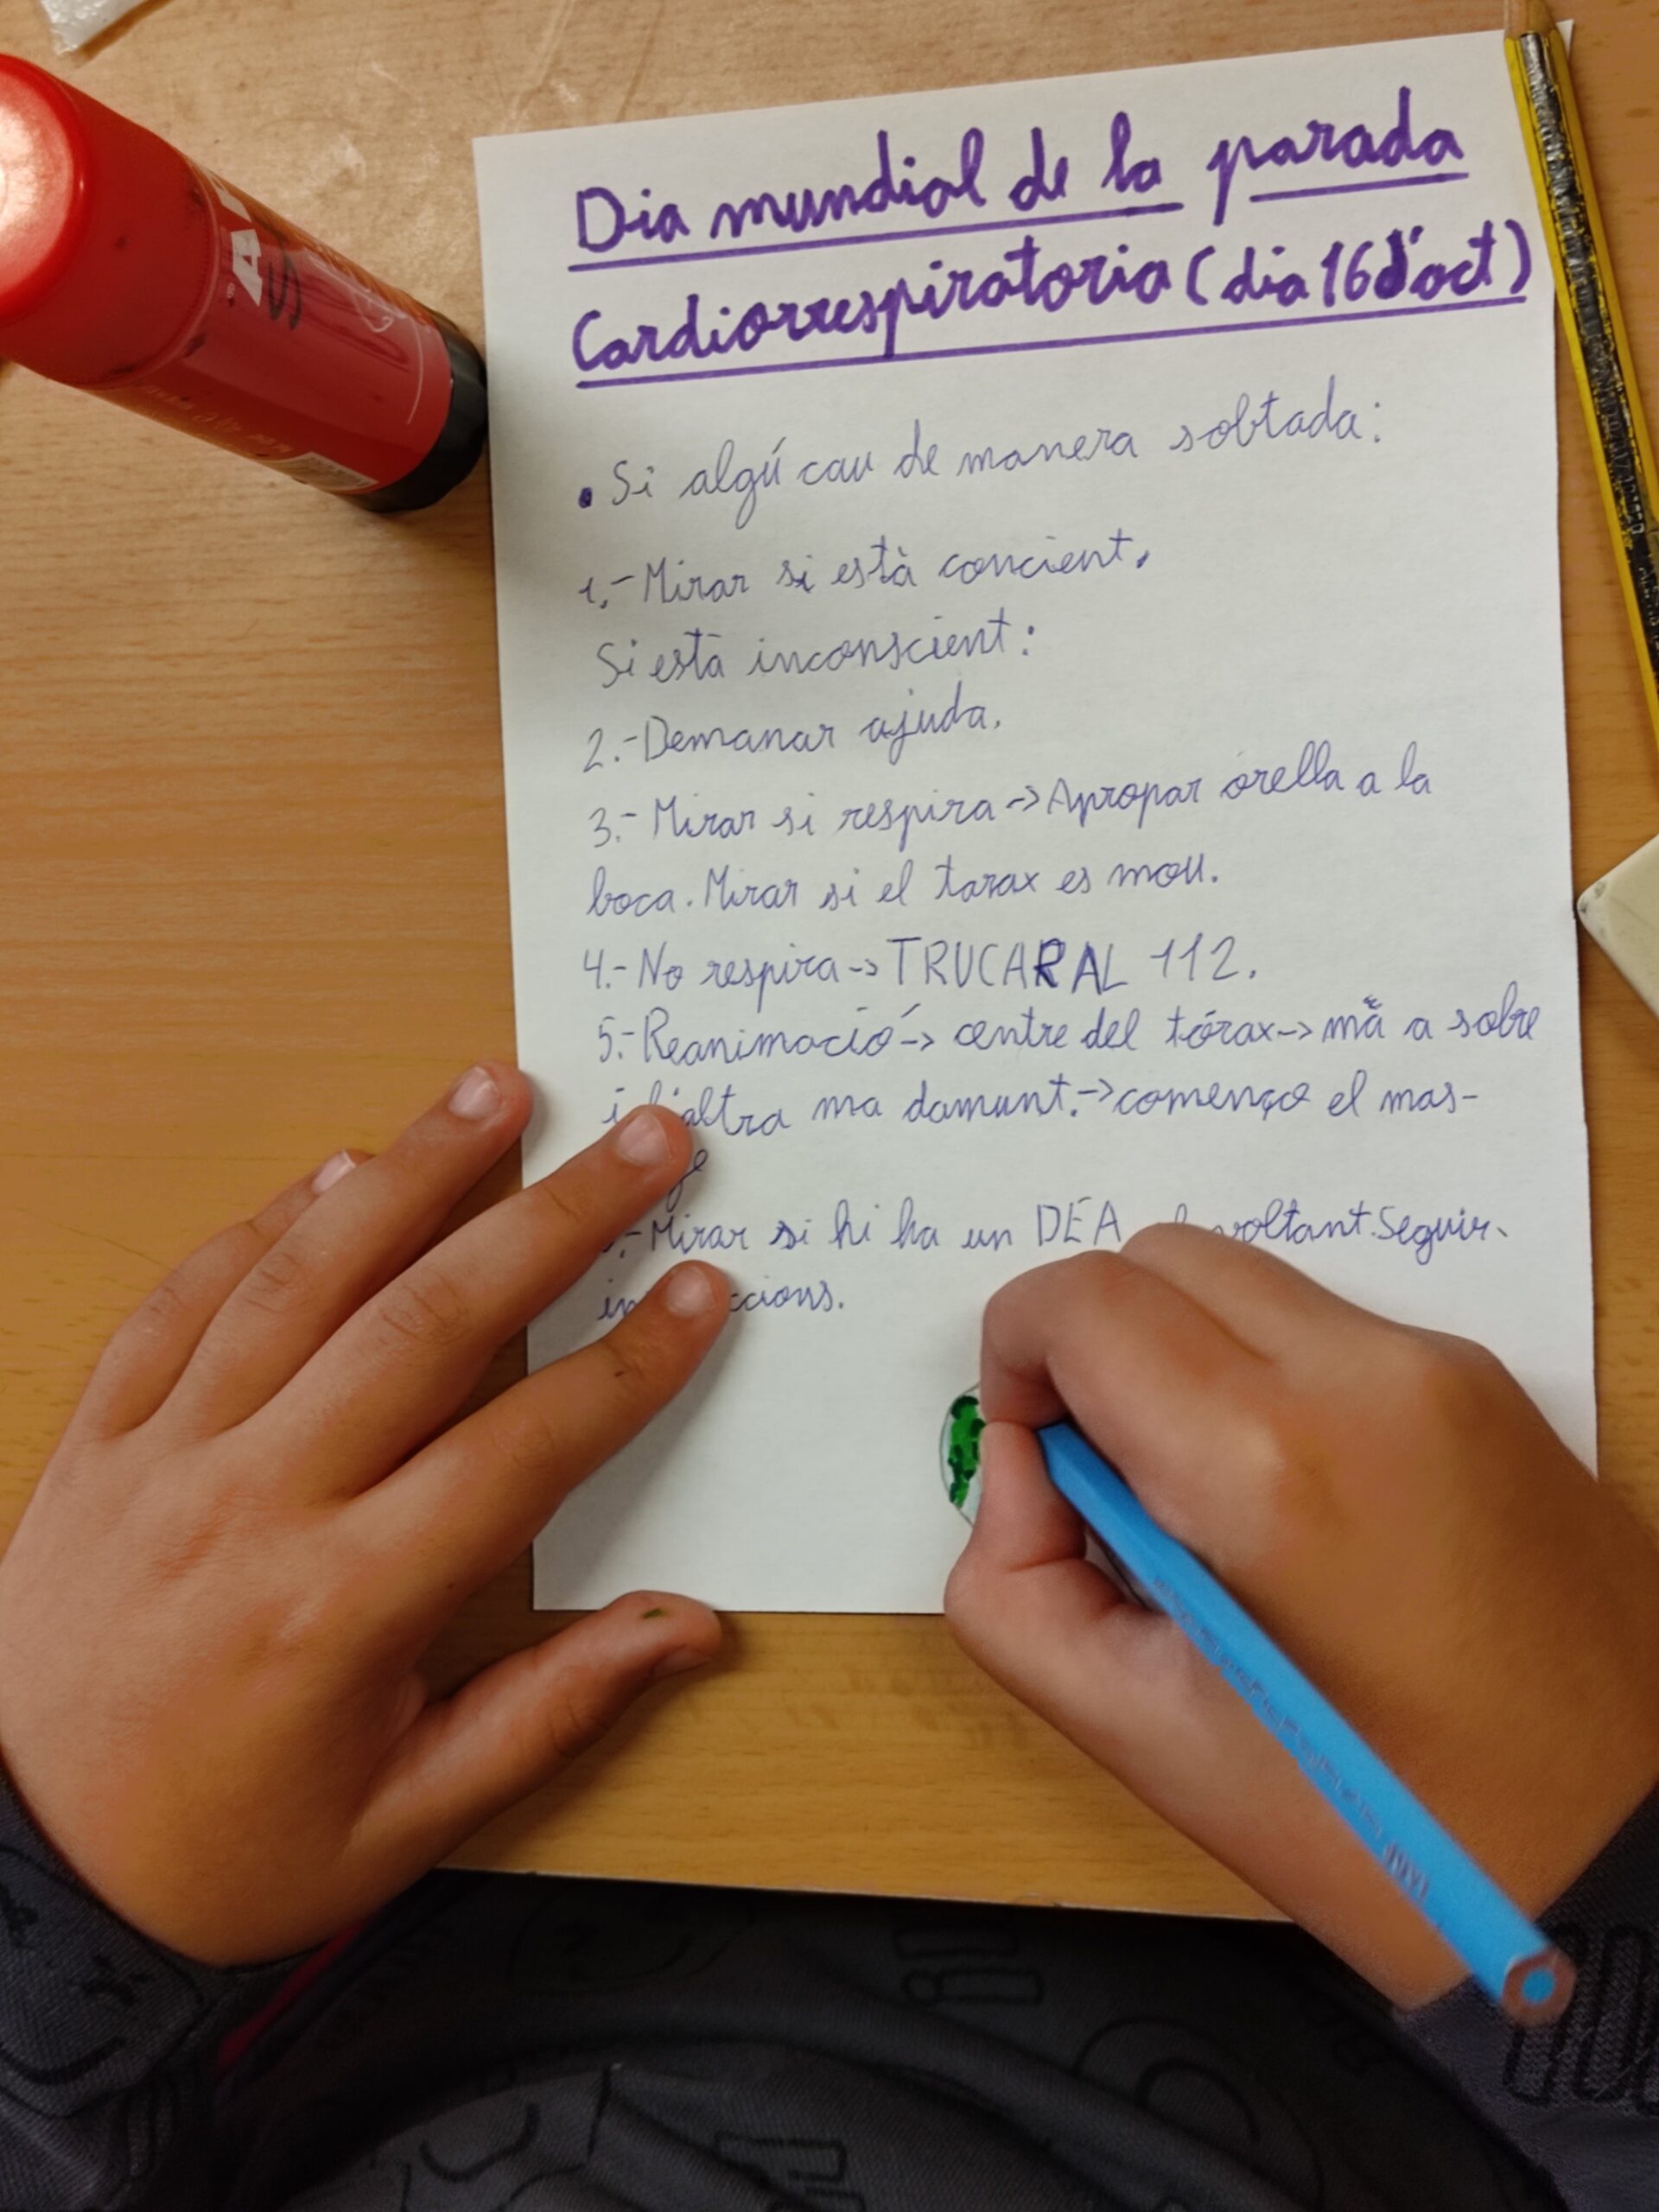 Dia mundial de la parada
Cardiorrespiratoria (dia 16 d'oct)
• Si algú cau de manera sobtada:
1.- Mirar si està concient.
Si està inconscient:
2.- Demanar ajuda.
3.- Mirar si respira -> Apropar orella a la
boca. Mirar si el tarax es mou.
4.- No respira -> TRUCAR AL 112.
5.- Reanimació -> centre del tórax -> mà a sobre
i l'altra ma damunt. -> començo el mas-
Mirar si hi ha un DEA voltant. Seguir